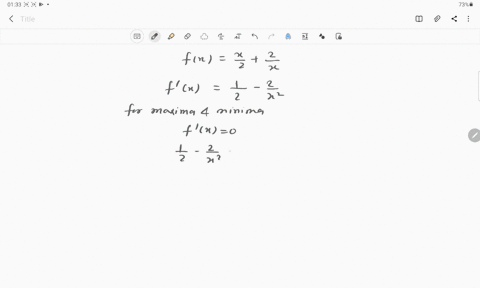 01:33
73%
Title
f(x) = x/2 + 2/x
f'(x) = 1/2 - 2/x²
for maxima & minima
f'(x) = 0
1/2 - 2/x²